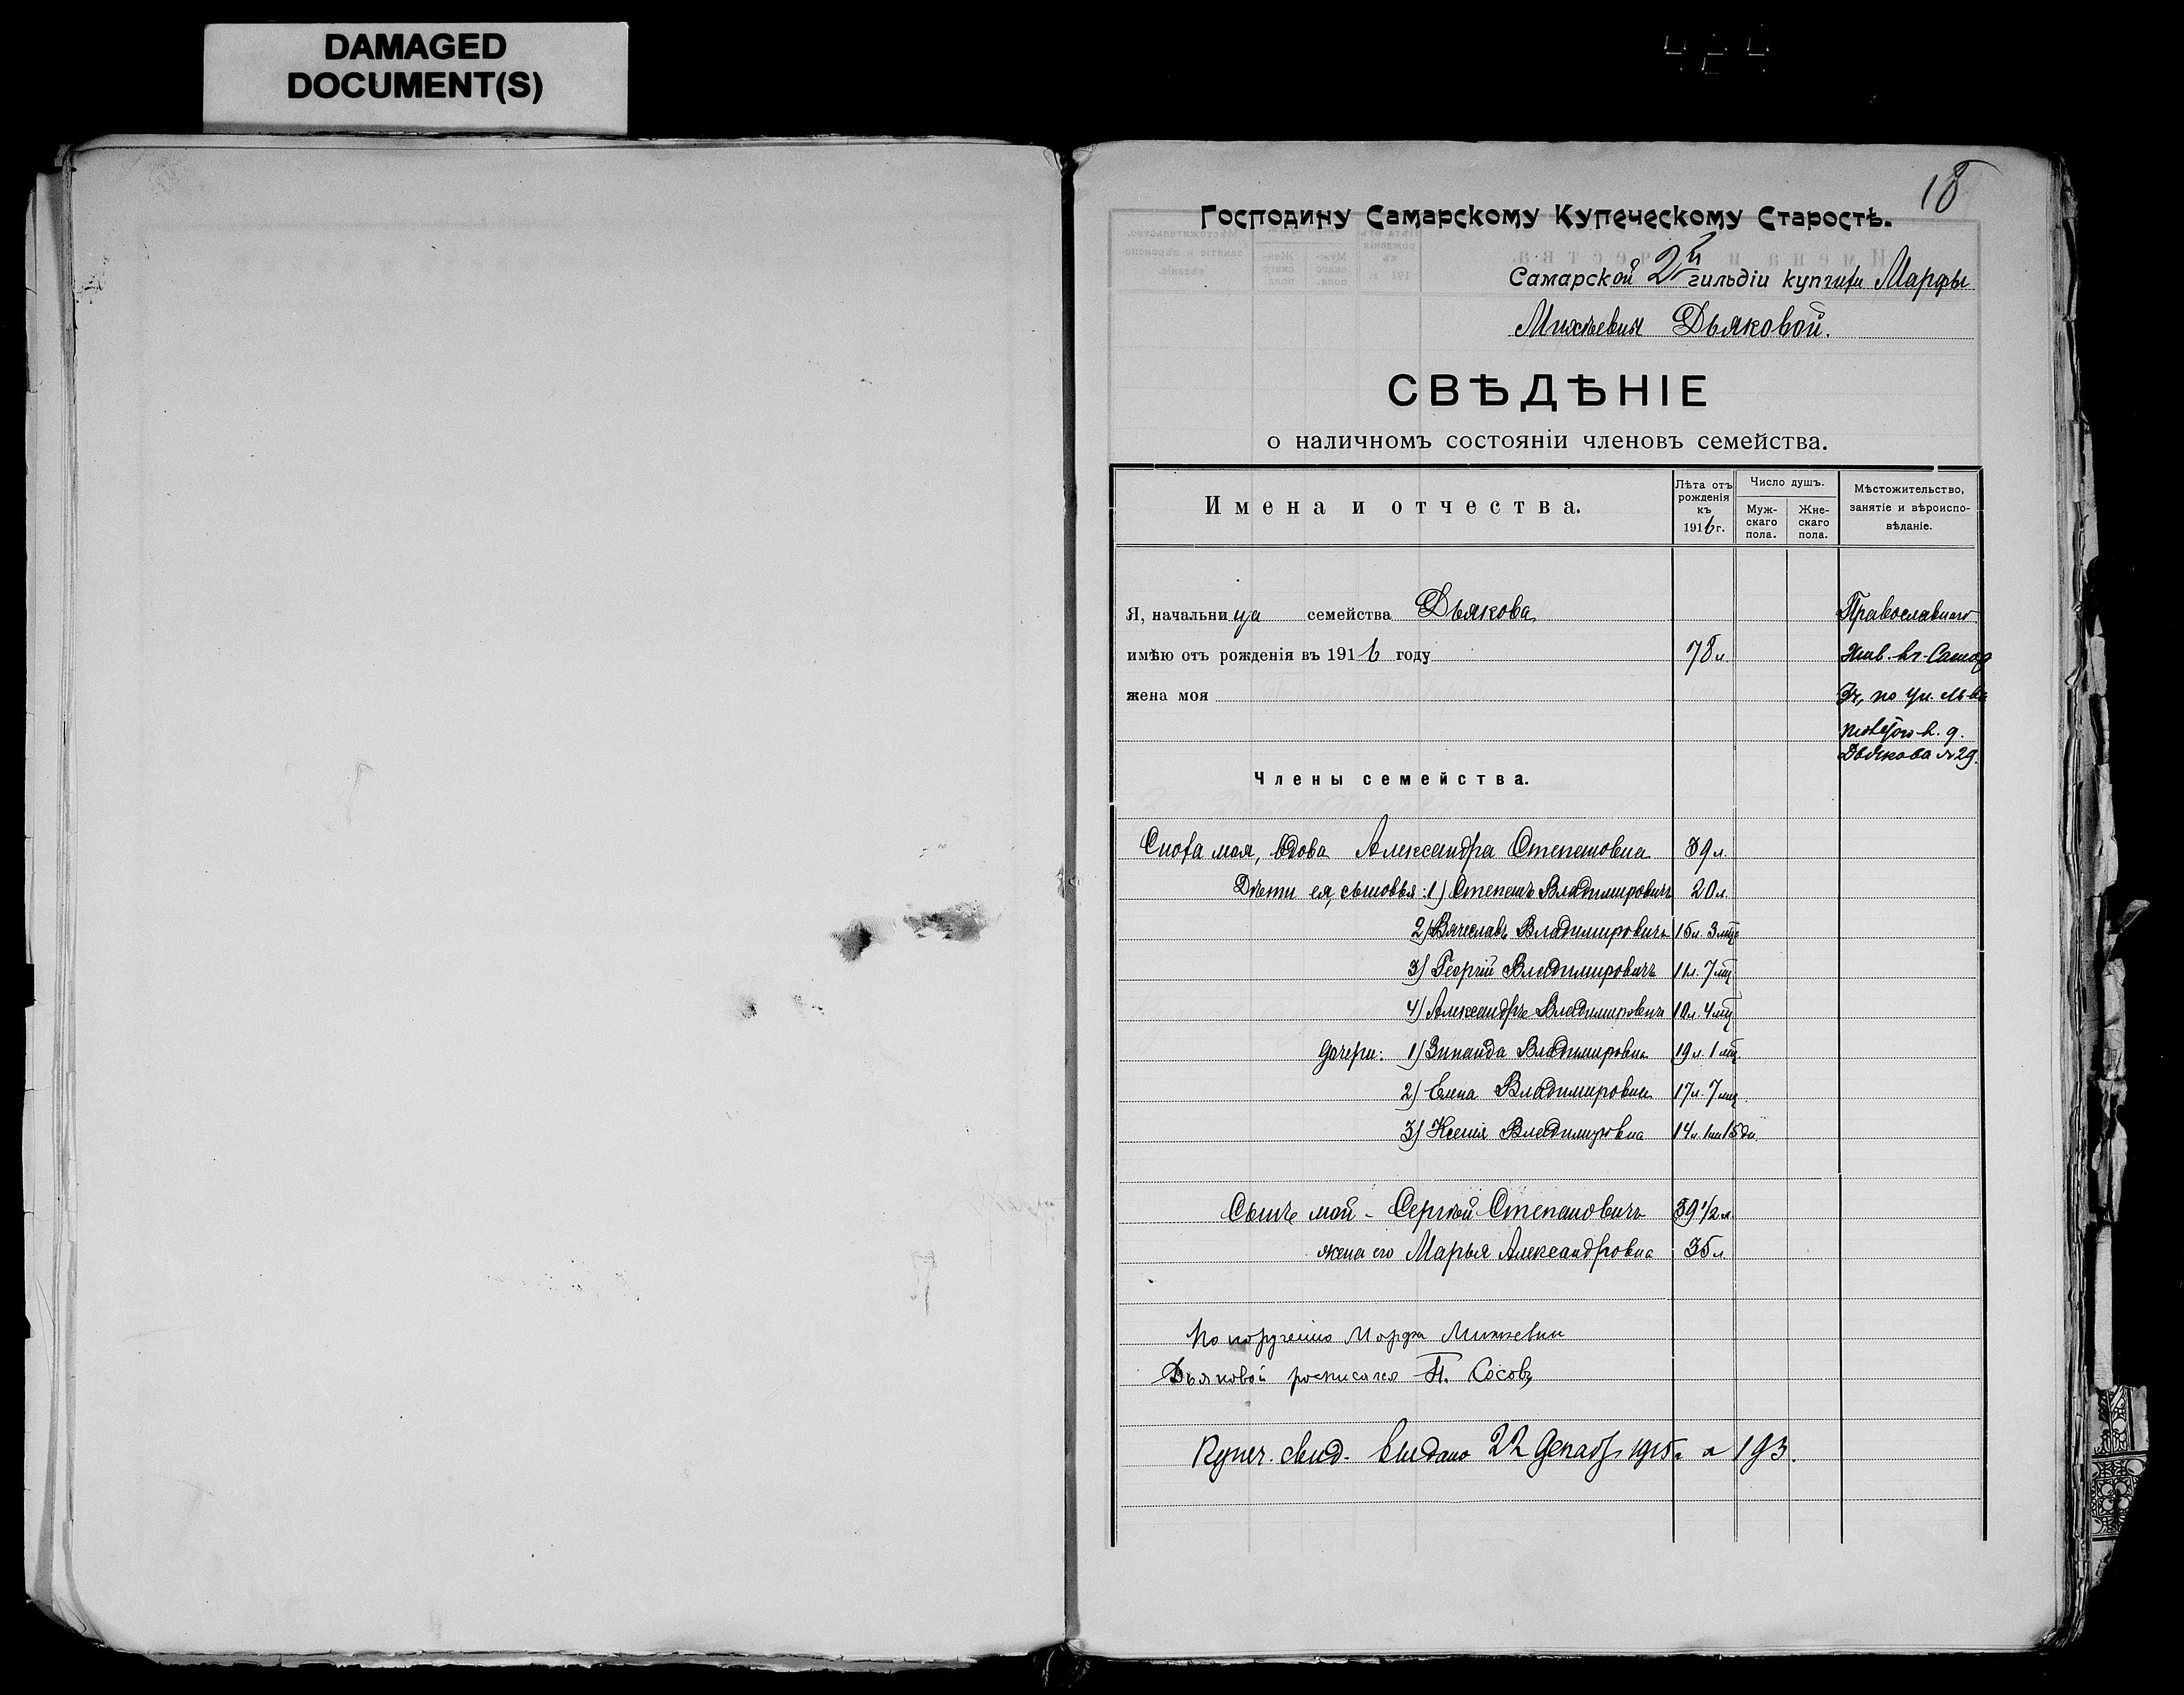 DAMAGED
DOCUMENT(S)
18
Господину Самарскому Купеческому Старостѣ.
Самарской 2й гильдіи купчихи Марфы
Михѣевны Дьяковой.
СВѢДѢНІЕ
о наличномъ состояніи членовъ семейства.
Имена и отчества.
Лѣта отъ рожденія къ 1916 г.
Число душъ.
Муж-скаго пола.
Жне-скаго пола.
Мѣстожительство, занятіе и вѣроиспо-вѣданіе.
Я, начальница семейства Дьякова Православнаго
имѣю отъ рожденія въ 1916 году 78 л. Жив. въ г. Сама
жена моя рѣ, по ул. Льва
Толстого в. д.
Дьякова № 29.
Члены семейства.
Сноха моя, вдова Александра Степановна 39 л.
Дѣти ея, сыновья: 1) Степанъ Владимировичъ 20 л.
2) Вячеславъ Владимировичъ 15 л. 3 мце
3) Георгій Владимировичъ 11 л. 7 мц
4) Александръ Владимировичъ 10 л. 4 мц
дочери: 1) Зинаида Владимировна 19 л. 1 мц
2) Елена Владимировна 17 л. 7 мц
3) Ксенія Владимировна 14 л. 1 м 15 дн.
Сынъ мой - Сергѣй Степановичъ 39 1/2 л.
жена его Марья Александровна 35 л.
По порученію Марфы Михеевны
Дьяковой росписался П. Сосовъ
Купеч. свид. выдано 22 Декабр 1915 г № 193.